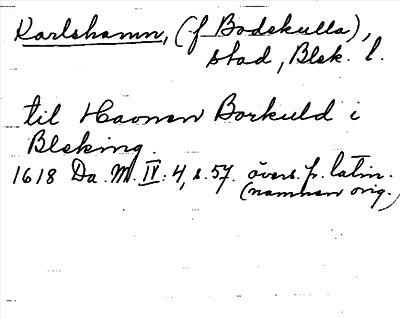 Karlshamn, (f Bodekulla),
stad, Blek. l.
til Havnen Borkuld i
Bleking.
1618 Da. M. IV: 4, s. 57. övers. fr. latin.
(namnen orig.)